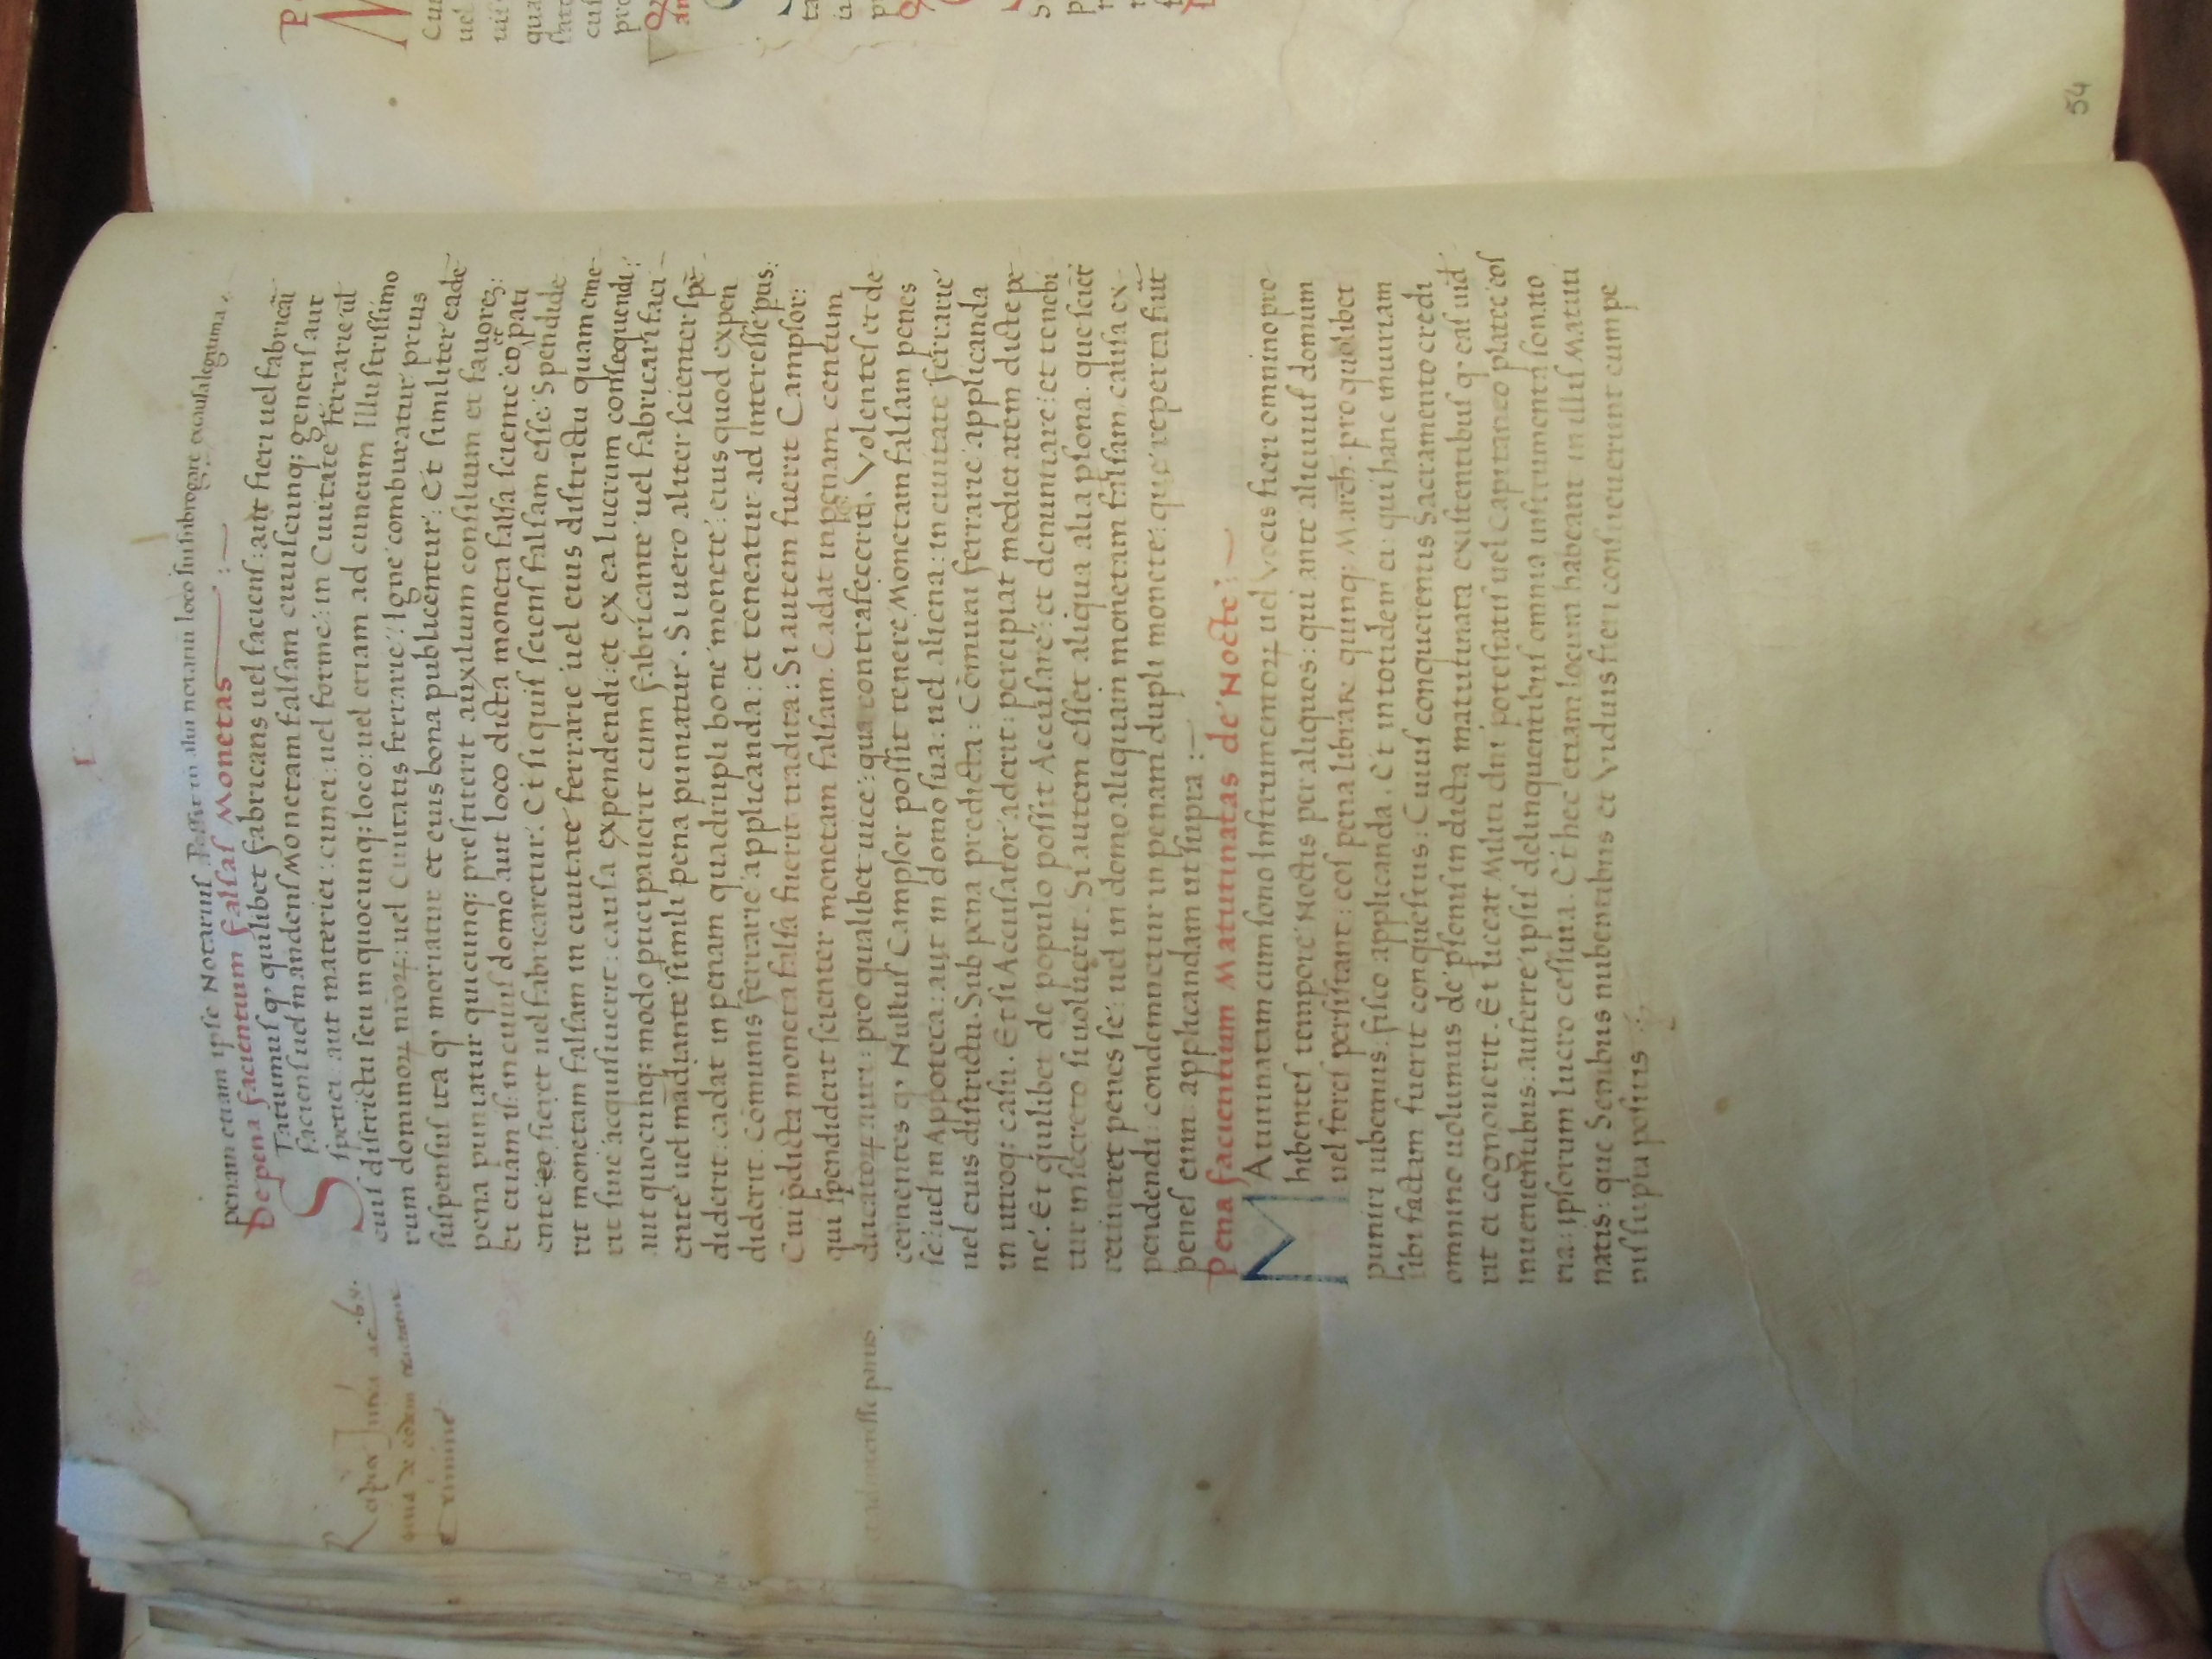 penam etiam ipse Notarius Possit tn alui notarii loco sui subrogare ex causa legitima.
De pena facientium falsas Monetas
Statuimus q' quilibet fabricans uel faciens: aut fieri uel fabricari
faciens uel mandens Monetam falsam cuiuscunq; generis aut
speciei: aut materiei: cunei: uel forme: in Ciuitate Ferrarie uł
eius districtu seu in quocunq; loco: uel etiam ad cuneum Illustrissimo
rum dominoꝝ nr̄oꝝ: uel Ciuitatis ferrarie: Igne comburatur prius
suspensus ita q' moriatur et eius bona publicentur: Et similiter eade
pena puniatur quicunq; prestiterit auxilium consilium et fauorez:
Et etiam is: in cuius domo aut loco dicta moneta falsa sciente eo, et pati
ente eo fieret uel fabricaretur: Et si quis sciens falsam esse Spendide
rit monetam falsam in ciuitate ferrarie uel eius districtu quam eme
rit siue acquisiuerit: causa expendendi: et ex ea lucrum consequendi:
aut quocunq; modo pticipauerit cum fabricante uel fabricari faci
ente uel mādiante simili pena puniatur. Si uero aliter scienter spē
diderit. cadat in penam quadrupli bone monete: eius quod expen
diderit. cōmunis ferrarie applicanda: et teneatur ad interesse pus:
Cui p̄dicta moneta falsa fuerit tradita: Si autem fuerit Campsor:
qui spendiderit scienter monetam falsam. Cadat in penam centum
ducatoꝝ auri: pro qualibet uice: qua contrafecerit. Volentes et de
cernentes q' Nullus Campsor possit tenere Monetam falsam penes
se: uel in Appoteca: aut in domo sua: uel aliena: in ciuitate ferrarie
uel eius districtu. Sub pena predicta: Cōmuni ferrarie applicanda
in utroq; casu. Et si Accusator aderit: percipiat medietatem dicte pe
ne. Et quilibet de populo possit Accusare: et denuntiare: et tenebi
tur in secreto si uoluerit. Si autem esset aliqua alia psona. que sciēt
retineret penes se: uel in domo aliquam monetam falsam causa ex
pendendi: condemnetur in penam dupli monete: que reperta fūit
penes eum applicandam ut supra:
Pena facientium Matutinatas de Nocte:
MAtutinatam cum sono Instrumentoꝝ uel Vocis fieri omnino pro
hibentes tempore Noctis per aliquos: qui ante alicuius domum
uel fores persistant: eos pena librar. quinq; March. pro quolibet
puniri iubemus: fisco applicanda. Et in totidem ei: qui hanc iniuriam
sibi factam fuerit conquestus: Cuius conquerentis Sacramento credi
omnino uolumus de psonis in dicta matutinata existentibus q' eas uid
rit et cognouerit. Et liceat Militi dn̄i potestatis uel Capitaneo platee eos
inuenientibus: auferre ipsis delinquentibus omnia instrumenta sonato
ria: ipsorum lucro cessura. Et hec etiam locum habeant in illis Matuti
natis: que Senibus nubentibus et Viduis fieri consueuerunt eum pe
nis supra positis
prius.
Crimine
54